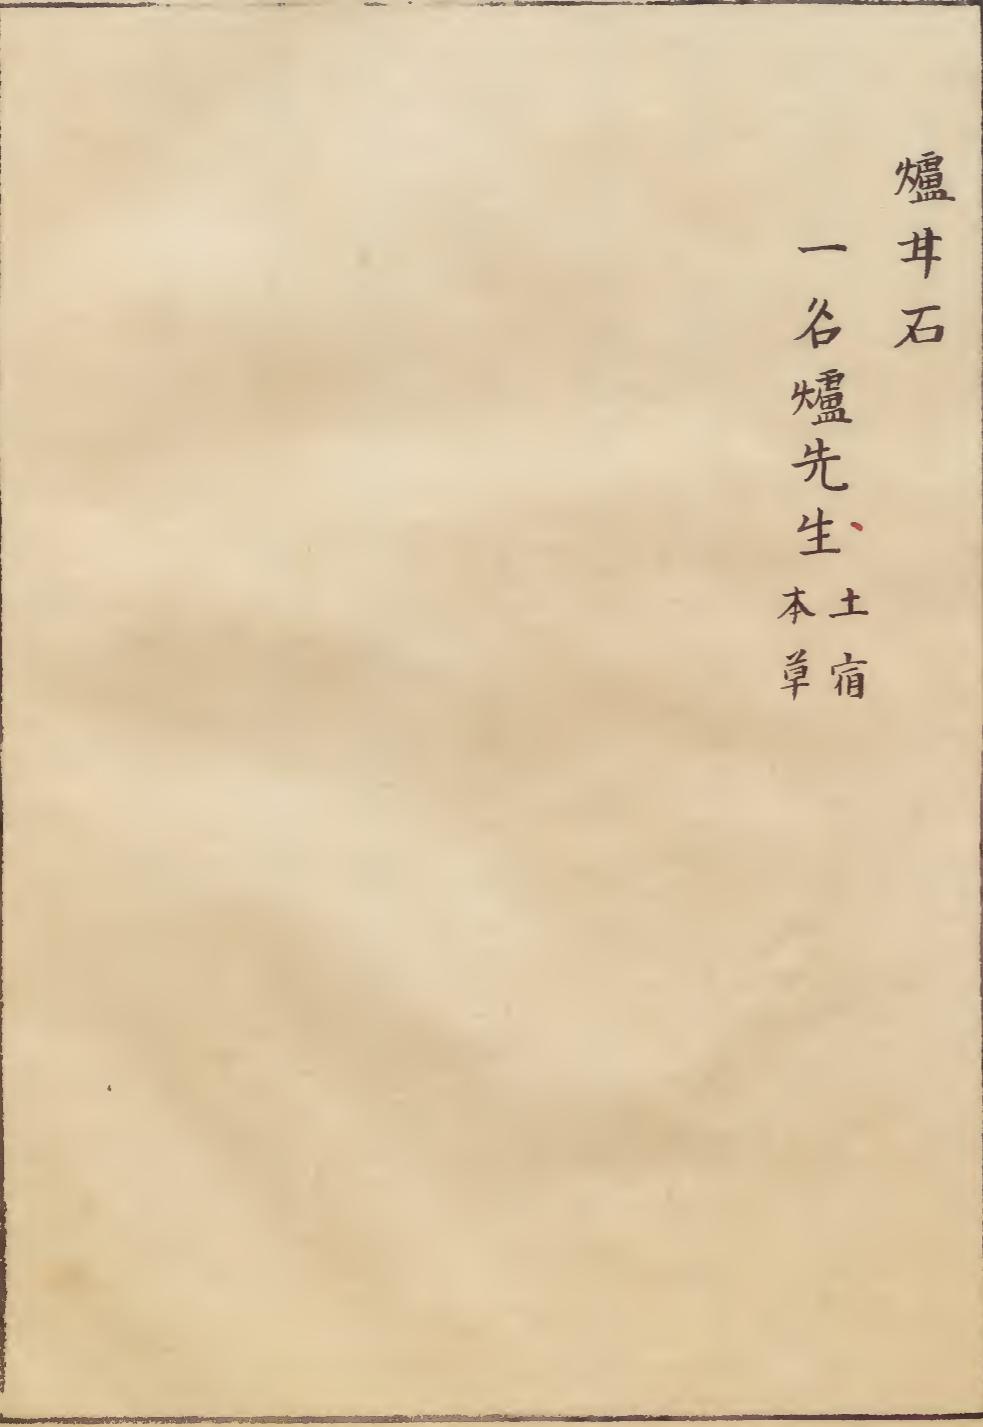 爐甘石
一名爐先生、土宿本草